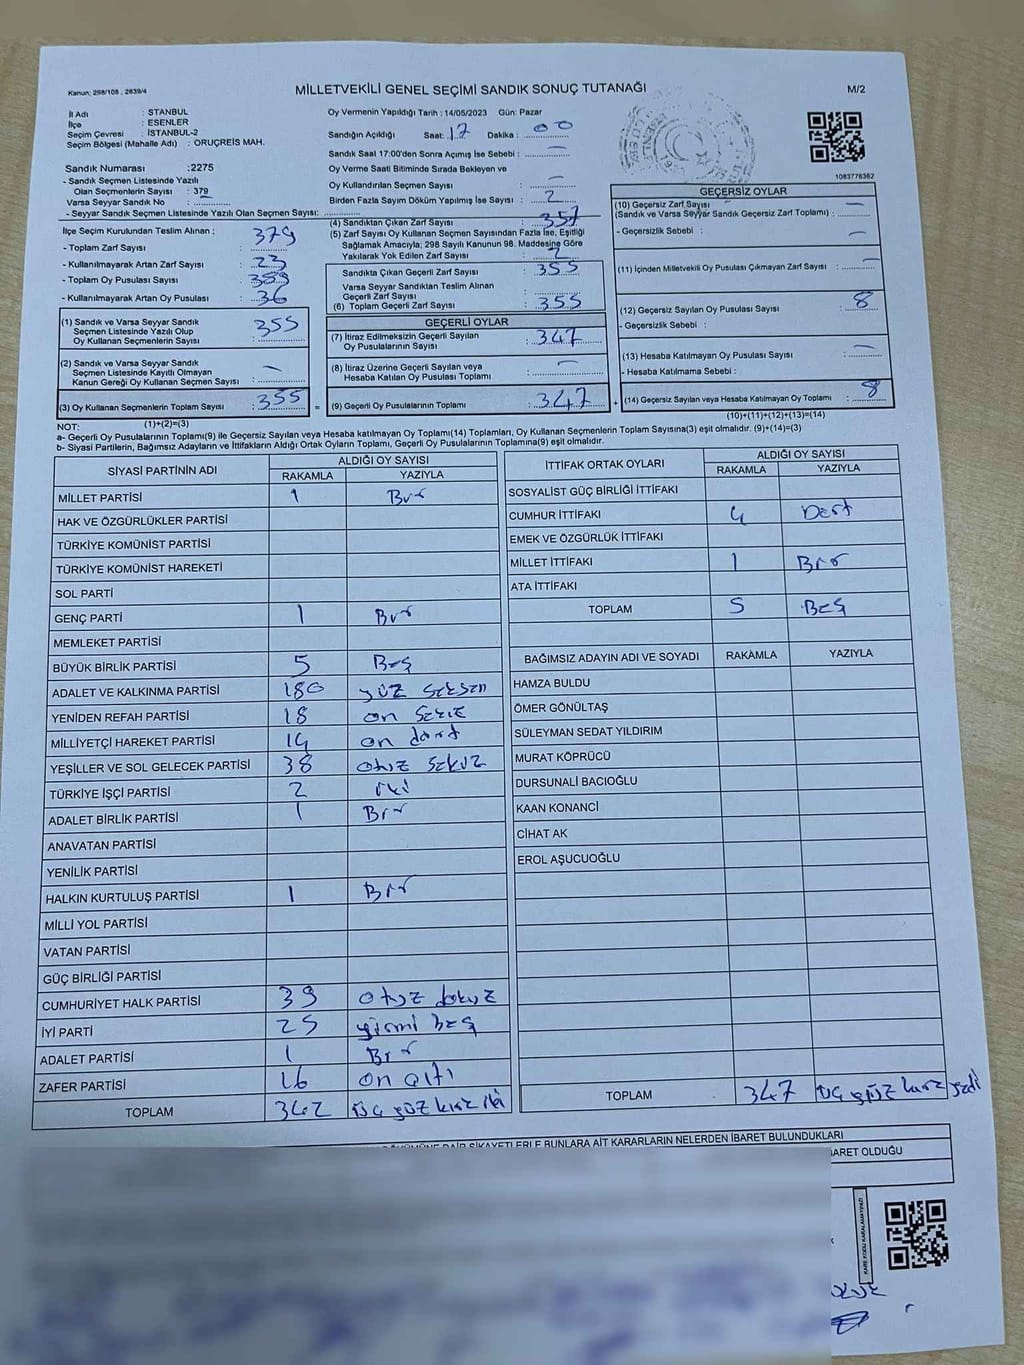 Kanun; 298/105 , 2839/4
MİLLETVEKİLİ GENEL SEÇİMİ SANDIK SONUÇ TUTANAĞI
M/2
İl Adı : STANBUL
İlçe : ESENLER
Seçim Çevresi : İSTANBUL-2
Seçim Bölgesi (Mahalle Adı) : ORUÇREİS MAH.
Sandık Numarası :2275
- Sandık Seçmen Listesinde Yazılı
Olan Seçmenlerin Sayısı : 379
Varsa Seyyar Sandık No :
- Seyyar Sandık Seçmen Listesinde Yazılı Olan Seçmen Sayısı:
Oy Vermenin Yapıldığı Tarih : 14/05/2023 Gün: Pazar
Sandığın Açıldığı Saat: 17 Dakika : 00
Sandık Saat 17:00'den Sonra Açımış İse Sebebi : —
Oy Verme Saati Bitiminde Sırada Bekleyen ve
Oy Kullandırılan Seçmen Sayısı : —
Birden Fazla Sayım Döküm Yapılmış İse Sayısı : 2
1083776362
İlçe Seçim Kurulundan Teslim Alınan ;
- Toplam Zarf Sayısı : 379
- Kullanılmayarak Artan Zarf Sayısı : 23
- Toplam Oy Pusulası Sayısı : 389
- Kullanılmayarak Artan Oy Pusulası : 36
(1) Sandık ve Varsa Seyyar Sandık
Seçmen Listesinde Yazılı Olup
Oy Kullanan Seçmenlerin Sayısı : 355
(2) Sandık ve Varsa Seyyar Sandık
Seçmen Listesinde Kayıtlı Olmayan
Kanun Gereği Oy Kullanan Seçmen Sayısı : —
(3) Oy Kullanan Seçmenlerin Toplam Sayısı : 355 =
(1)+(2)=(3)
(4) Sandıktan Çıkan Zarf Sayısı : 357
(5) Zarf Sayısı Oy Kullanan Seçmen Sayısından Fazla İse, Eşitliği
Sağlamak Amacıyla; 298 Sayılı Kanunun 98. Maddesine Göre
Yakılarak Yok Edilen Zarf Sayısı : 2
Sandıkta Çıkan Geçerli Zarf Sayısı : 355
Varsa Seyyar Sandıktan Teslim Alınan
Geçerli Zarf Sayısı :
(6) Toplam Geçerli Zarf Sayısı : 355
GEÇERLİ OYLAR
(7) İtiraz Edilmeksizin Geçerli Sayılan
Oy Pusulalarının Sayısı : 347
(8) İtiraz Üzerine Geçerli Sayılan veya
Hesaba Katılan Oy Pusulası Toplamı : —
(9) Geçerli Oy Pusulalarının Toplamı : 347 +
GEÇERSİZ OYLAR
(10) Geçersiz Zarf Sayısı : —
(Sandık ve Varsa Seyyar Sandık Geçersiz Zarf Toplamı)
- Geçersizlik Sebebi : —
(11) İçinden Milletvekili Oy Pusulası Çıkmayan Zarf Sayısı : —
(12) Geçersiz Sayılan Oy Pusulası Sayısı : 8
- Geçersizlik Sebebi :
(13) Hesaba Katılmayan Oy Pusulası Sayısı : —
- Hesaba Katılmama Sebebi :
(14) Geçersiz Sayılan veya Hesaba Katılmayan Oy Toplamı : 8
(10)+(11)+(12)+(13)=(14)
NOT:
a- Geçerli Oy Pusulalarının Toplamı(9) ile Geçersiz Sayılan veya Hesaba katılmayan Oy Toplamı(14) Toplamları, Oy Kullanan Seçmenlerin Toplam Sayısına(3) eşit olmalıdır. (9)+(14)=(3)
b- Siyasi Partilerin, Bağımsız Adayların ve İttifakların Aldığı Ortak Oyların Toplamı, Geçerli Oy Pusulalarının Toplamına(9) eşit olmalıdır.
SİYASİ PARTİNİN ADI ALDIĞI OY SAYISI
RAKAMLA YAZIYLA
MİLLET PARTİSİ 1 Bir
HAK VE ÖZGÜRLÜKLER PARTİSİ
TÜRKİYE KOMÜNİST PARTİSİ
TÜRKİYE KOMÜNİST HAREKETİ
SOL PARTİ
GENÇ PARTİ 1 Bir
MEMLEKET PARTİSİ
BÜYÜK BİRLİK PARTİSİ 5 Beş
ADALET VE KALKINMA PARTİSİ 180 yüz seksen
YENİDEN REFAH PARTİSİ 18 on sekiz
MİLLİYETÇİ HAREKET PARTİSİ 14 on dört
YEŞİLLER VE SOL GELECEK PARTİSİ 38 otuz sekiz
TÜRKİYE İŞÇİ PARTİSİ 2 iki
ADALET BİRLİK PARTİSİ 1 Bir
ANAVATAN PARTİSİ
YENİLİK PARTİSİ
HALKIN KURTULUŞ PARTİSİ 1 Bir
MİLLİ YOL PARTİSİ
VATAN PARTİSİ
GÜÇ BİRLİĞİ PARTİSİ
CUMHURİYET HALK PARTİSİ 39 otuz dokuz
İYİ PARTİ 25 yirmi beş
ADALET PARTİSİ 1 Bir
ZAFER PARTİSİ 16 on altı
TOPLAM 342 üç yüz kırk iki
İTTİFAK ORTAK OYLARI ALDIĞI OY SAYISI
RAKAMLA YAZIYLA
SOSYALİST GÜÇ BİRLİĞİ İTTİFAKI
CUMHUR İTTİFAKI 4 Dört
EMEK VE ÖZGÜRLÜK İTTİFAKI
MİLLET İTTİFAKI 1 Bir
ATA İTTİFAKI
TOPLAM 5 Beş
BAĞIMSIZ ADAYIN ADI VE SOYADI RAKAMLA YAZIYLA
HAMZA BULDU
ÖMER GÖNÜLTAŞ
SÜLEYMAN SEDAT YILDIRIM
MURAT KÖPRÜCÜ
DURSUNALİ BACIOĞLU
KAAN KONANCİ
CİHAT AK
EROL AŞUCUOĞLU
TOPLAM 347 üç yüz kırk yedi
DAİR ŞİKAYETLERLE BUNLARA AİT KARARLARIN NELERDEN İBARET BULUNDUKLARI
BARET OLDUĞU
KARE KODU KARALAMAYINIZ!